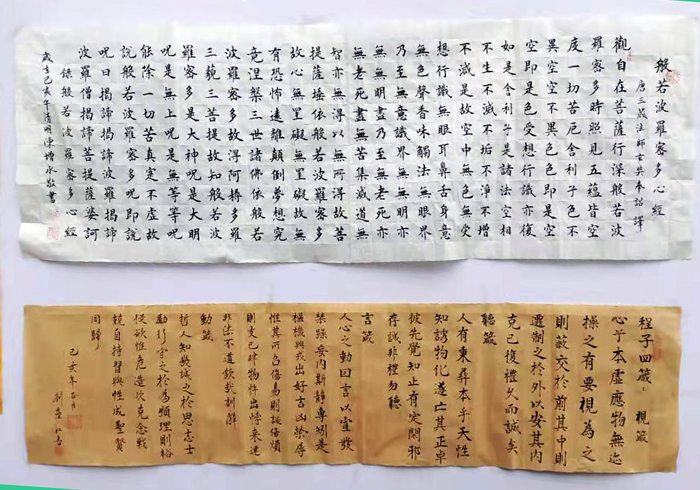 般若波羅密多心經
唐三藏法師玄奘奉詔譯
觀自在菩薩行深般若波
羅密多時照見五蘊皆空
度一切苦厄舍利子色不
異空空不異色色即是空
空即是色受想行識亦復
如是舍利子是諸法空相
不生不滅不垢不淨不增
不減是故空中無色無受
想行識無眼耳鼻舌身意
無色聲香味觸法無眼界
乃至無意識界無無明亦
無無明盡乃至無老死亦
無老死盡無苦集滅道無
智亦無得以無所得故菩
提薩埵依般若波羅密多
故心無罣礙無罣礙故無
有恐怖遠離顛倒夢想究
竟涅槃三世諸佛依般若
波羅密多故得阿耨多羅
三藐三菩提故知般若波
羅密多是大神呪是大明
呪是無上呪是無等等呪
能除一切苦真實不虛故
說般若波羅密多呪即說
呪曰揭諦揭諦波羅揭諦
波羅僧揭諦菩提薩婆訶
般若波羅密多心經
歲在己亥年清明陳增水敬書
程子四箴： 視箴
心乎本虛應物無迹
操之有要視為之
則蔽交於前其中則
遷制之於外以安其內
克己復禮久而誠矣
聽箴
人有秉彝本乎天性
知誘物化遂亡其正卓
彼先覺知止有定閑邪
存誠非禮勿聽
言箴
人心之動因言以宣發
禁躁妄內斯靜專矧是
樞機興戎出好吉凶榮辱
惟其所召傷易則誕傷煩
則支己肆物忤出悖來違
非法不道欽哉訓辭
動箴
哲人知幾誠之於思志士
勵行守之於為順理則裕
從欲惟危造次克念戰
兢自持習與性成聖賢
同歸
己亥年